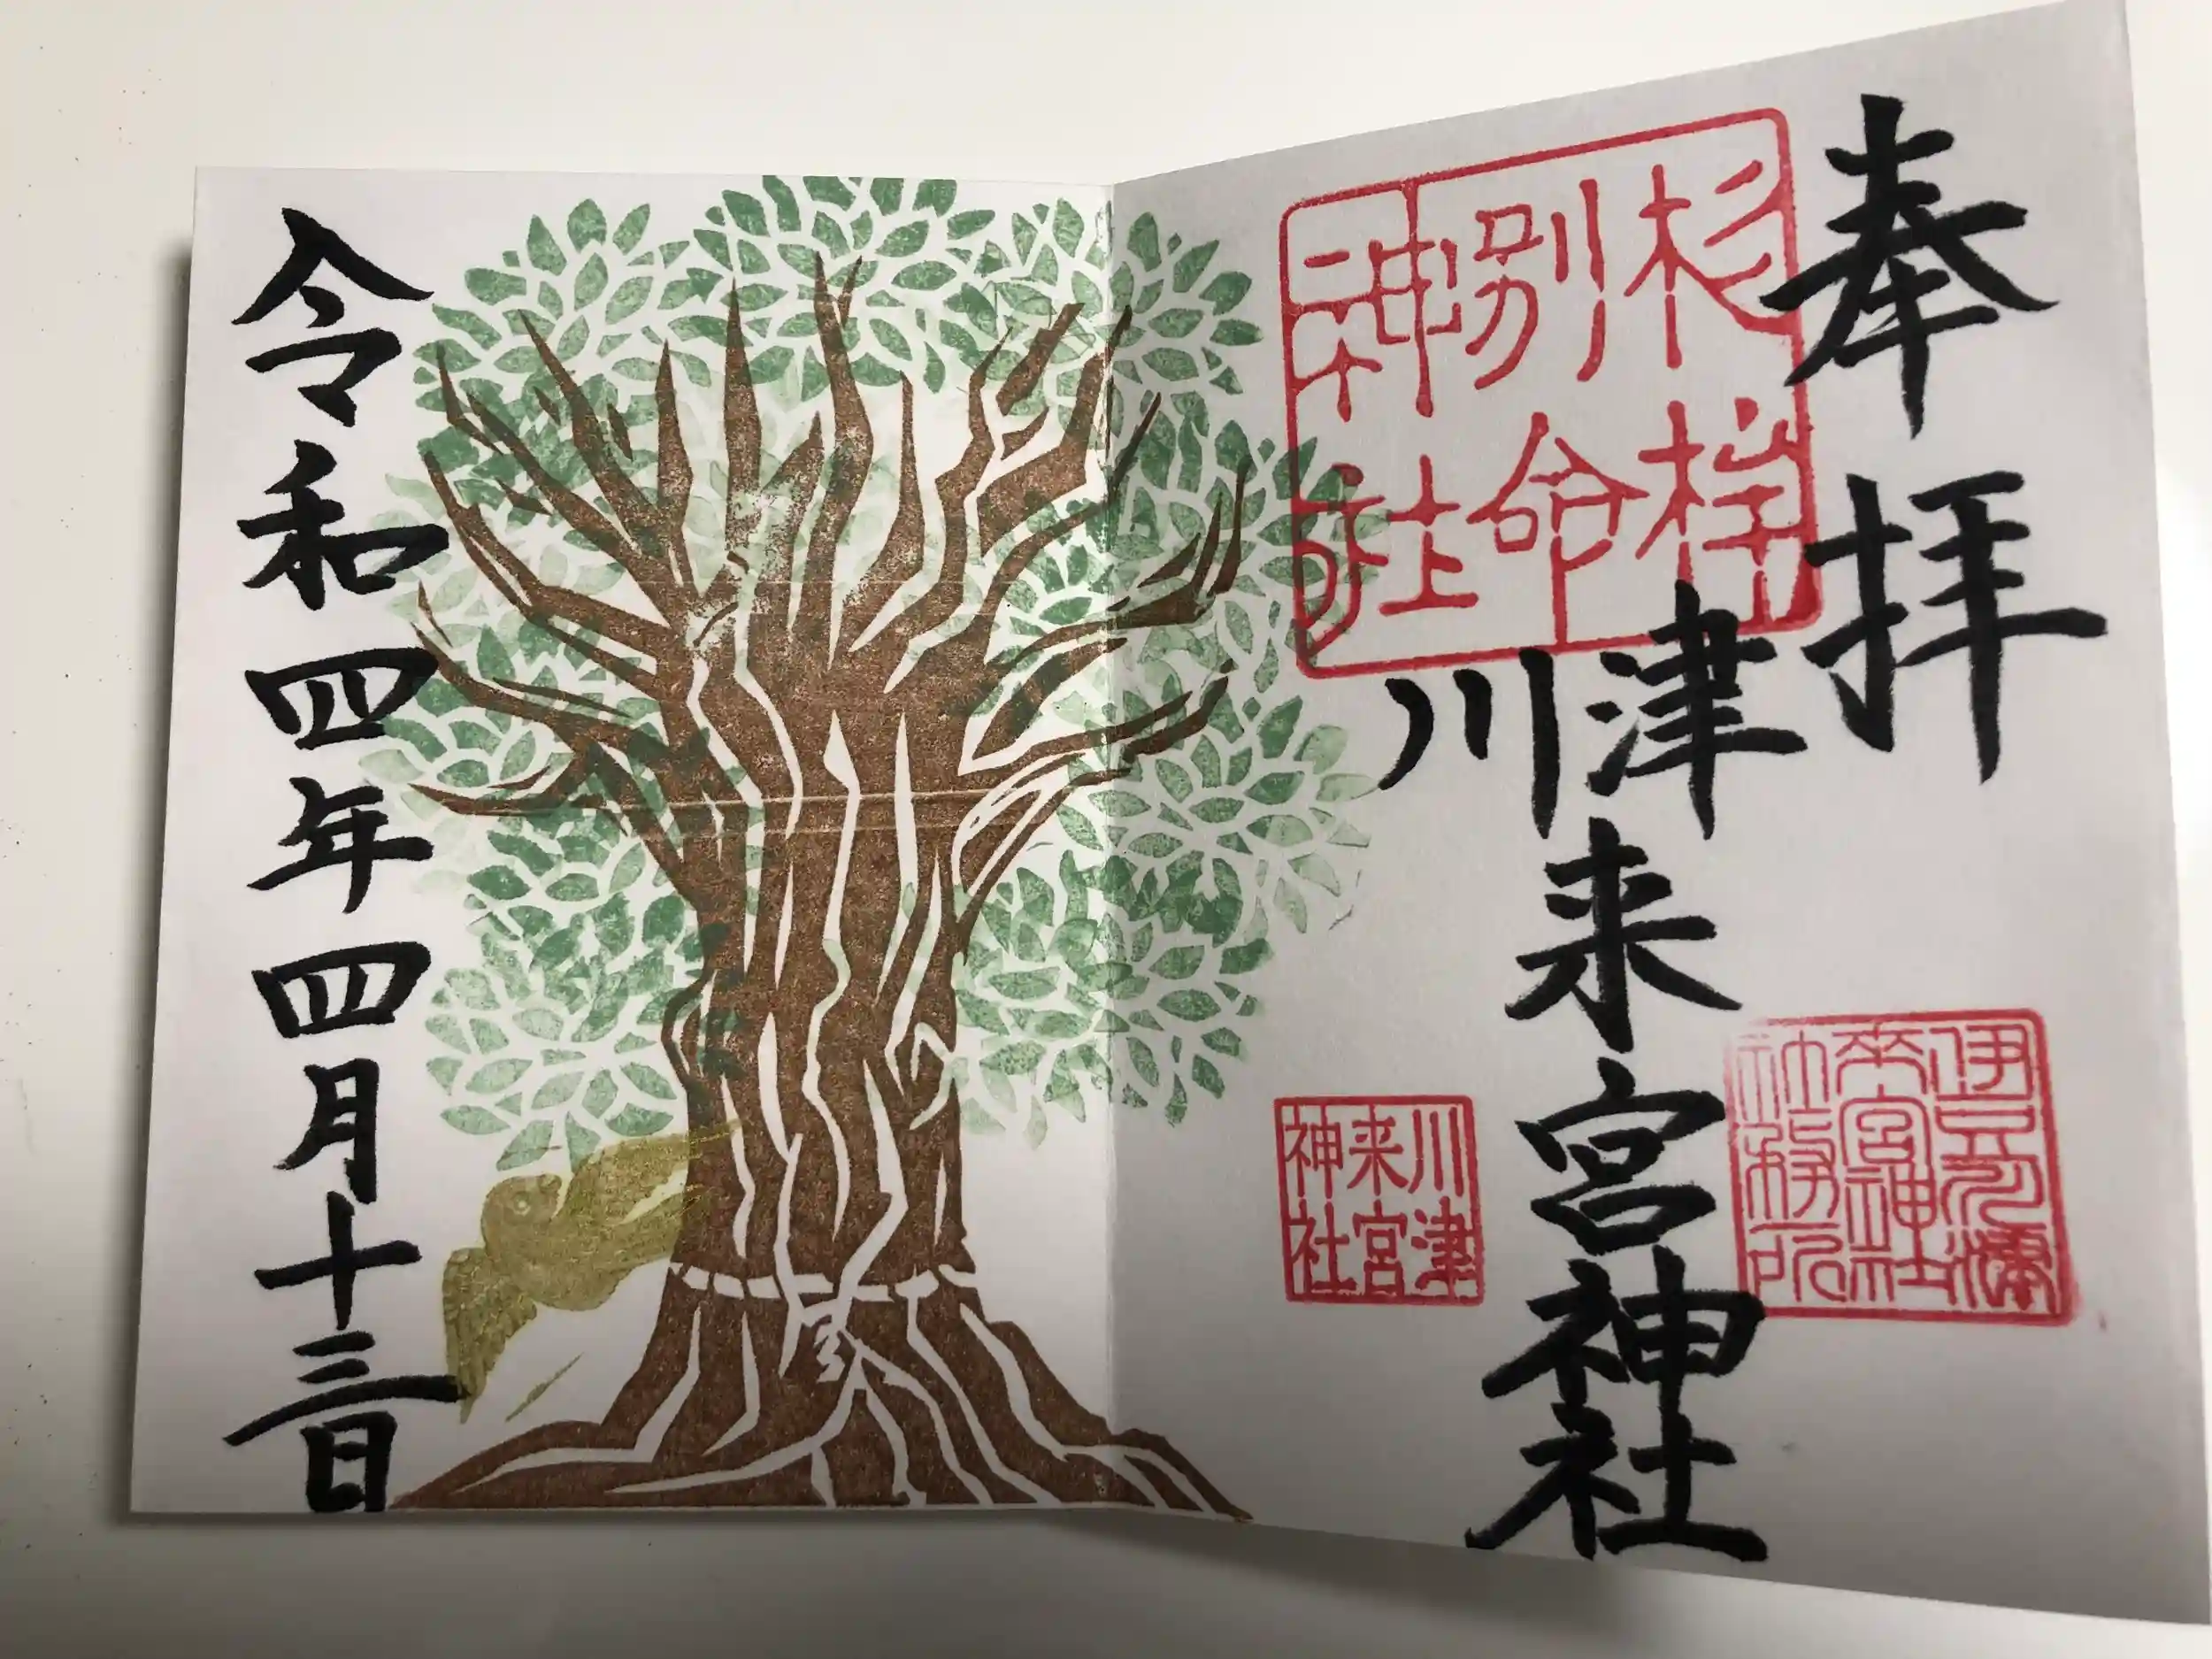 奉拝
杉桙
別命
神社
川津来宮神社
伊豆濱
来宮神社
社務所
川津
来宮
神社
令和四年四月十三日